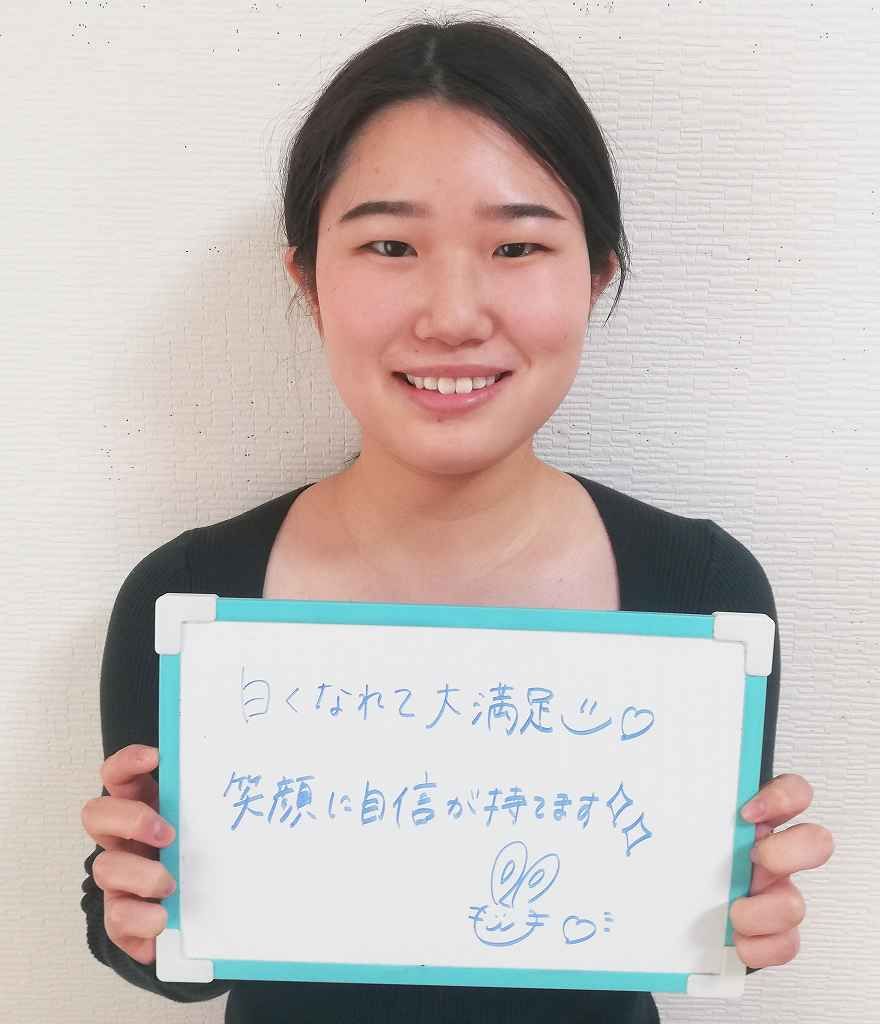 白くなれて大満足
笑顔に自信が持てます